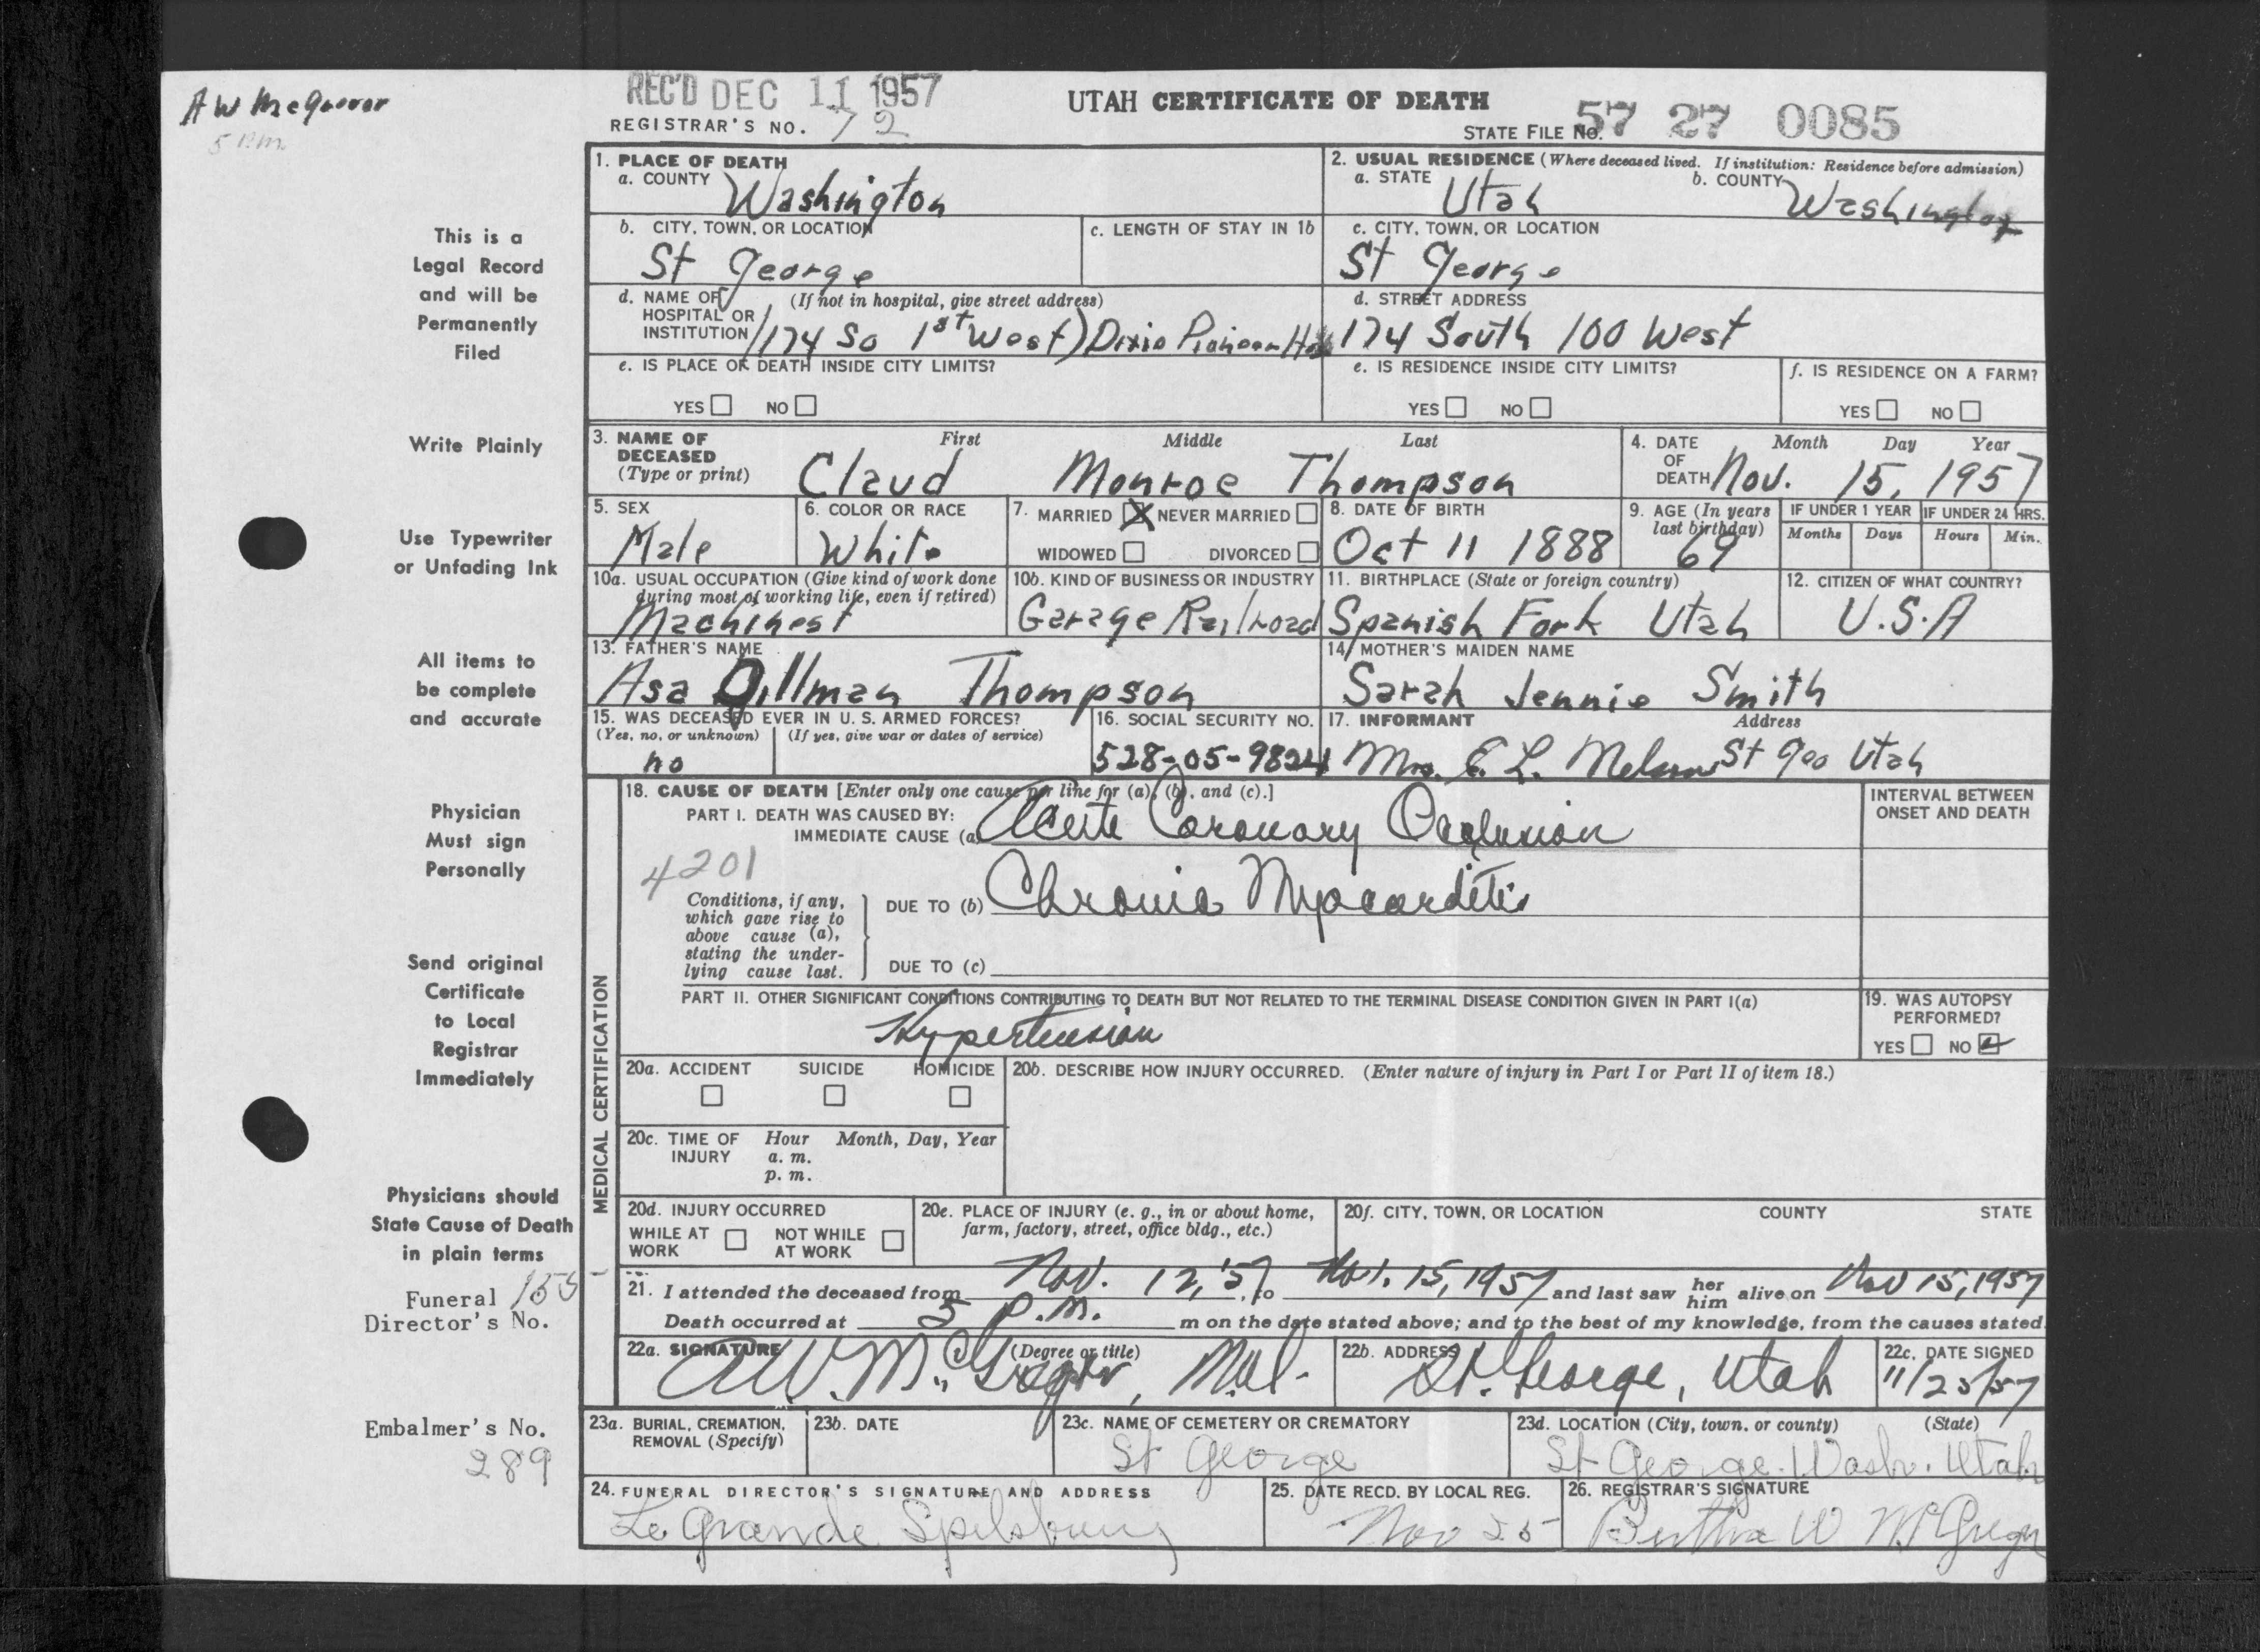 A W McGregor
5 P.M.
REC'D DEC 11 1957
UTAH CERTIFICATE OF DEATH
REGISTRAR'S NO. 72
STATE FILE NO. 57 27 0085
This is a
Legal Record
and will be
Permanently
Filed
Write Plainly
Use Typewriter
or Unfading Ink
All items to
be complete
and accurate
Physician
Must sign
Personally
Send original
Certificate
to Local
Registrar
Immediately
Physicians should
State Cause of Death
in plain terms
Funeral
Director's No.
Embalmer's No.
289
1. PLACE OF DEATH
a. COUNTY Washington
2. USUAL RESIDENCE (Where deceased lived. If institution: Residence before admission)
a. STATE Utah b. COUNTY Washington
b. CITY, TOWN, OR LOCATION St George
c. LENGTH OF STAY IN 1b
c. CITY, TOWN, OR LOCATION St George
d. NAME OF (If not in hospital, give street address)
HOSPITAL OR
INSTITUTION (174 So 1st West) Dixie Pioneer Hos
d. STREET ADDRESS
174 South 100 West
e. IS PLACE OF DEATH INSIDE CITY LIMITS?
YES NO
e. IS RESIDENCE INSIDE CITY LIMITS?
YES NO
f. IS RESIDENCE ON A FARM?
YES NO
3. NAME OF DECEASED (Type or print) First Middle Last
Claud Monroe Thompson
4. DATE OF DEATH Month Day Year
Nov. 15, 1957
5. SEX
Male
6. COLOR OR RACE
White
7. MARRIED X NEVER MARRIED
WIDOWED DIVORCED
8. DATE OF BIRTH
Oct 11 1888
9. AGE (In years last birthday)
69
IF UNDER 1 YEAR IF UNDER 24 HRS.
Months Days Hours Min.
10a. USUAL OCCUPATION (Give kind of work done
during most of working life, even if retired)
Machinest
10b. KIND OF BUSINESS OR INDUSTRY
Garage Railroad
11. BIRTHPLACE (State or foreign country)
Spanish Fork Utah
12. CITIZEN OF WHAT COUNTRY?
U.S.A
13. FATHER'S NAME
Asa Gillman Thompson
14. MOTHER'S MAIDEN NAME
Sarah Jennie Smith
15. WAS DECEASED EVER IN U. S. ARMED FORCES?
(Yes, no, or unknown) (If yes, give war or dates of service)
no
16. SOCIAL SECURITY NO.
528-05-9824
17. INFORMANT Address
Mrs. E. L. St Geo Utah
MEDICAL CERTIFICATION
18. CAUSE OF DEATH [Enter only one cause per line for (a), (b), and (c).]
INTERVAL BETWEEN
ONSET AND DEATH
PART I. DEATH WAS CAUSED BY:
IMMEDIATE CAUSE (a) Acute Coronary Occlusion
4201
Conditions, if any,
which gave rise to
above cause (a),
stating the under-
lying cause last.
DUE TO (b) Chronic Myocarditis
DUE TO (c)
PART II. OTHER SIGNIFICANT CONDITIONS CONTRIBUTING TO DEATH BUT NOT RELATED TO THE TERMINAL DISEASE CONDITION GIVEN IN PART I(a)
Hypertension
19. WAS AUTOPSY
PERFORMED?
YES NO
20a. ACCIDENT SUICIDE HOMICIDE
20b. DESCRIBE HOW INJURY OCCURRED. (Enter nature of injury in Part I or Part II of item 18.)
20c. TIME OF INJURY Hour Month, Day, Year
a. m.
p. m.
20d. INJURY OCCURRED
WHILE AT WORK NOT WHILE AT WORK
20e. PLACE OF INJURY (e. g., in or about home,
farm, factory, street, office bldg., etc.)
20f. CITY, TOWN, OR LOCATION COUNTY STATE
21. I attended the deceased from Nov. 12, '57, to Nov. 15, 1957 and last saw her him alive on Nov 15, 1957
Death occurred at 5 P.M. m on the date stated above; and to the best of my knowledge, from the causes stated.
22a. SIGNATURE (Degree or title)
A.W. McGregor, M.D.
22b. ADDRESS
St. George, Utah
22c. DATE SIGNED
11/25/57
23a. BURIAL, CREMATION,
REMOVAL (Specify)
23b. DATE
23c. NAME OF CEMETERY OR CREMATORY
St George
23d. LOCATION (City, town, or county) (State)
St George. Wash. Utah
24. FUNERAL DIRECTOR'S SIGNATURE AND ADDRESS
LeGrande Spilsbury
25. DATE RECD. BY LOCAL REG.
Nov 25
26. REGISTRAR'S SIGNATURE
Bertha W McGregor